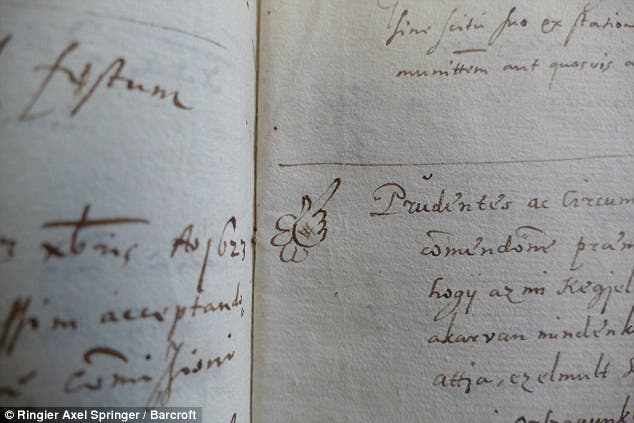 festum
xbris. Ao 1623
ssim acceptand
comissioni
sine scitu suo ex station
munittem aut quosvis a
Prudentes ac Circum
comendome
hogy az mi Kegjel
akarvan mindenk
attja, ezelmult
© Ringier Axel Springer / Barcroft